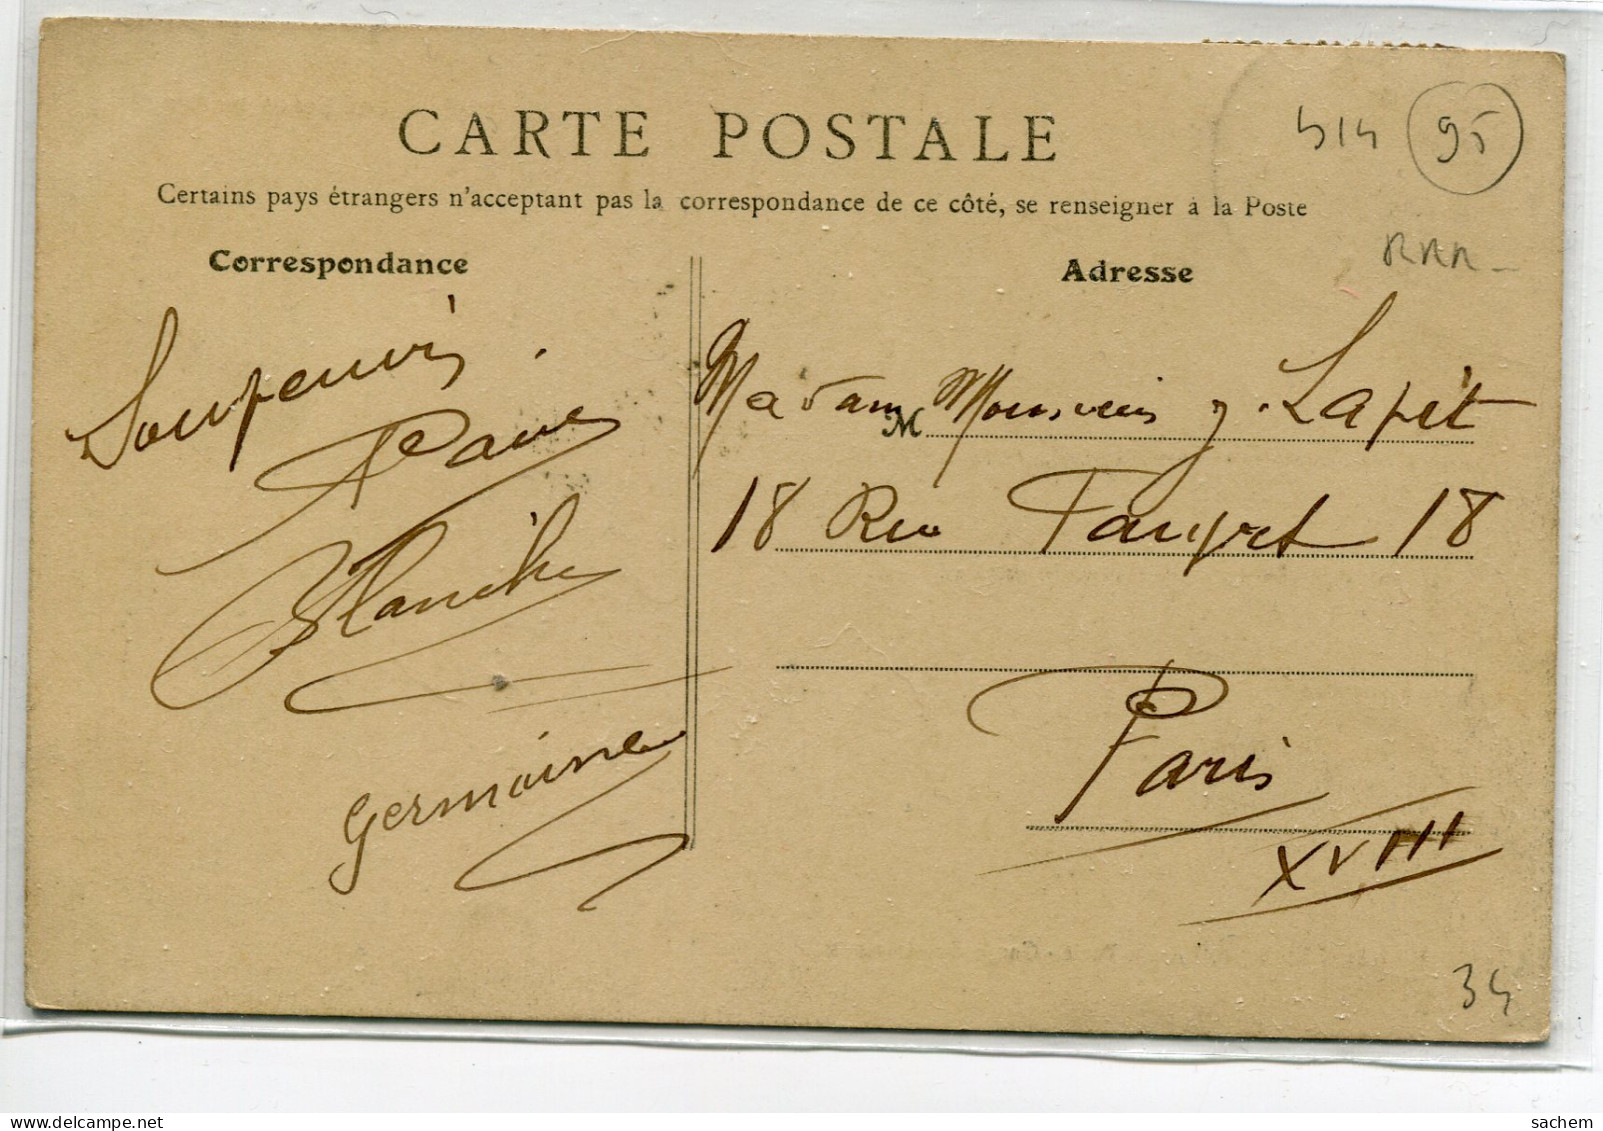 CARTE POSTALE
514 95
Certains pays étrangers n'acceptant pas la correspondance de ce côté, se renseigner à la Poste
Correspondance
Adresse
RRR
Souvenirs.
Blanche
Germaine
Madam Monsieur J. Lapit
M
18 Rue 18
Paris
XVIII
34
sachem